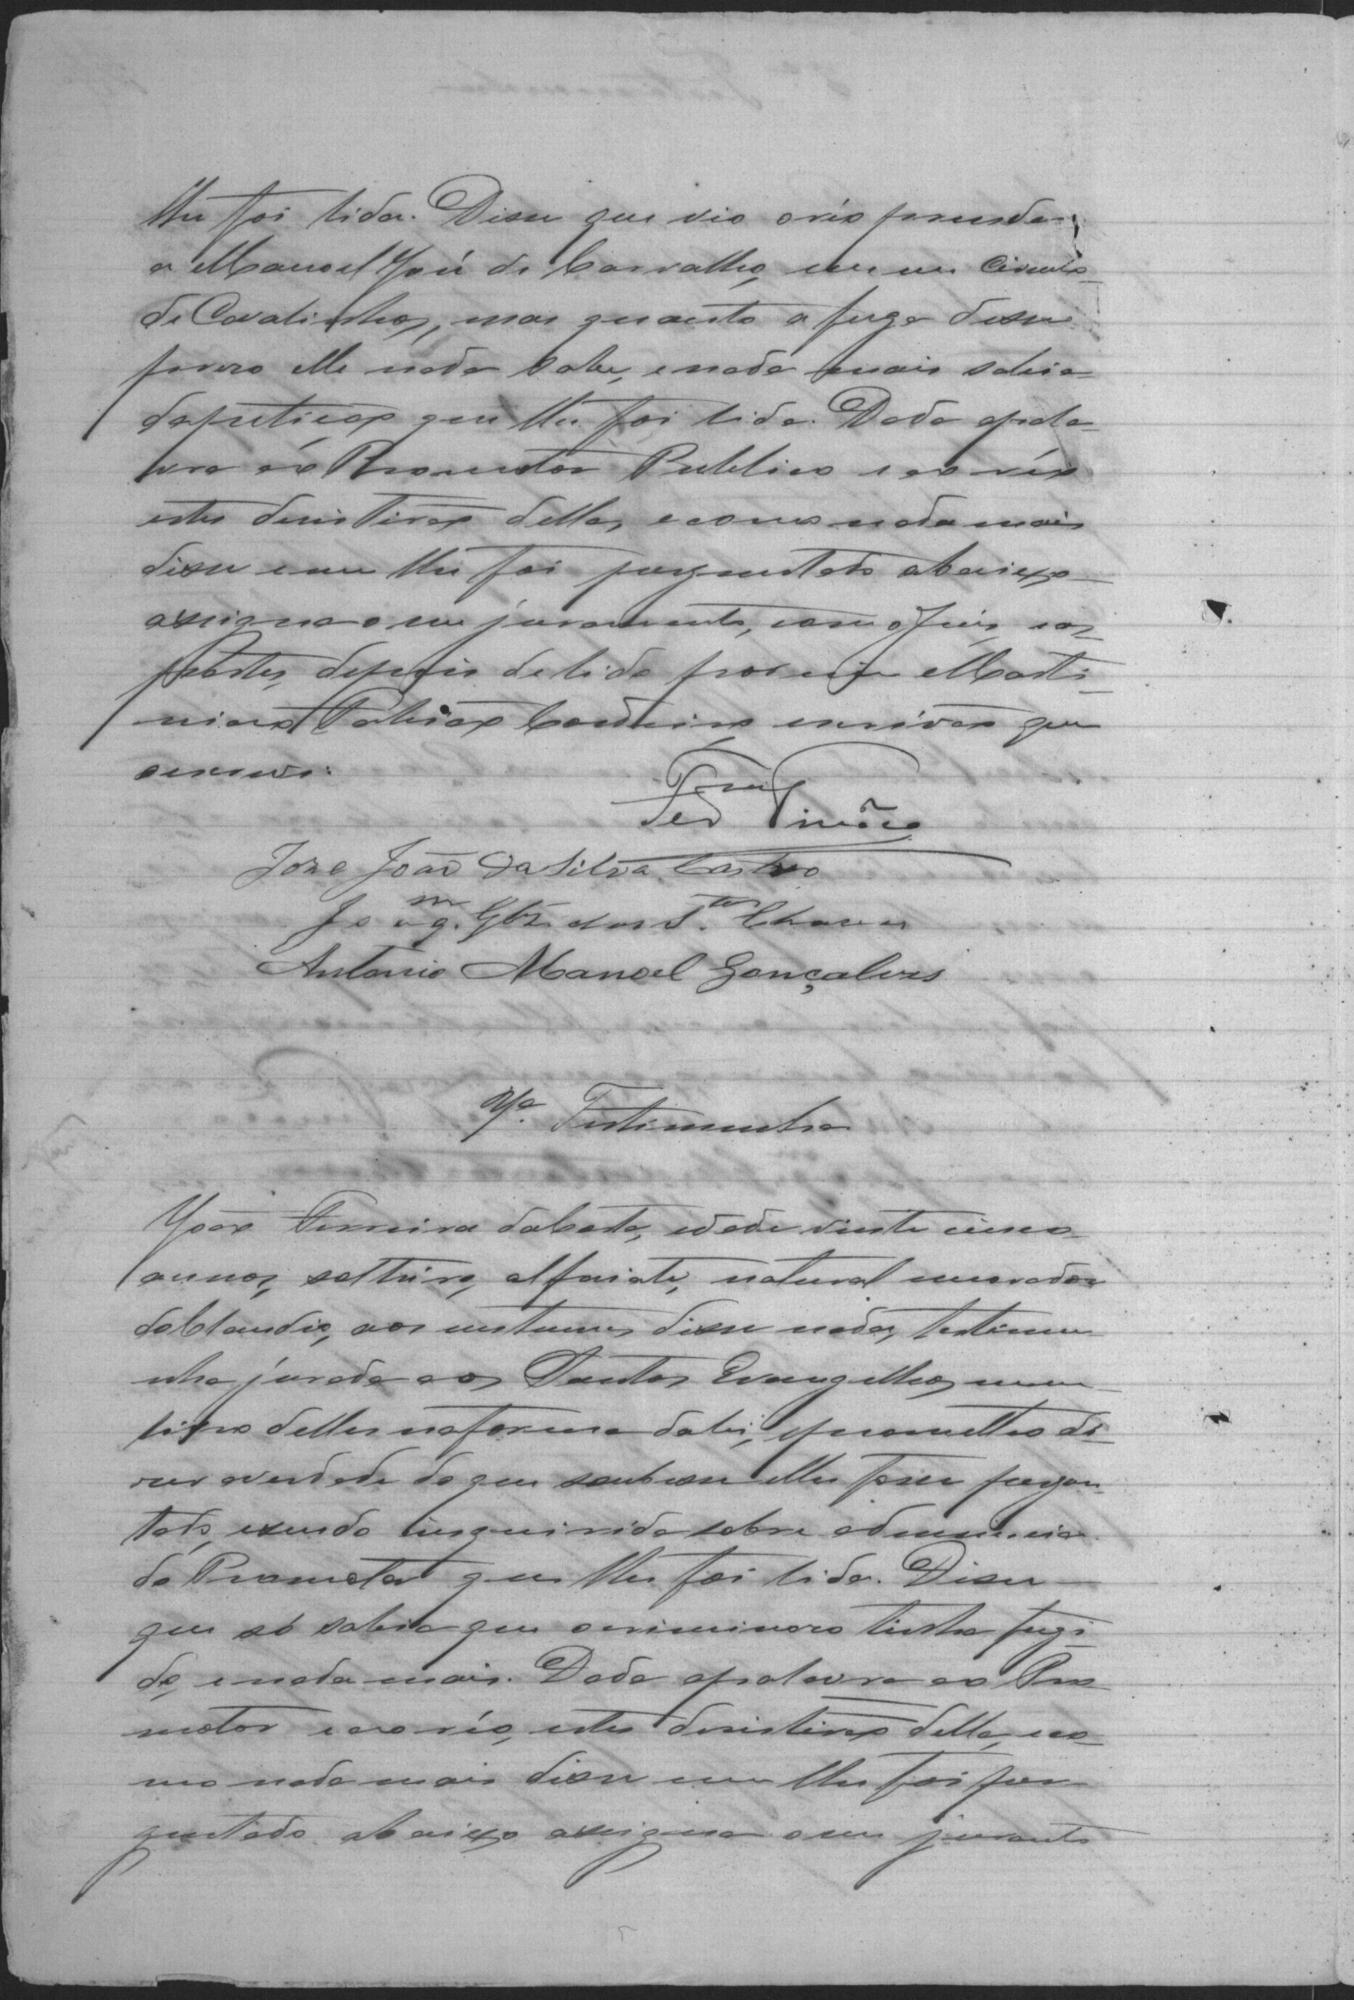 lhe foi lida. Disse que vio o réo prender
a Manoel José de Carvalho, em um Circulo
de Cavalinhos, mas quanto a fuga desse
preso elle nada sabe, e nada mais sabia
da petição que lhe foi lida. Dada a pala-
vra áo Promotor Publico e ao réo
estes desistirão della, e como nada mais
disse e nem lhe foi perguntado abaixo
assigna o seu juramento, com o Juis e as
partes, depois de lido por mim Marti-
niano Cordeiro escrivão que
o escrevi.
José João da Silva Castro
Joaqm. Glz dos Stos. Chaves
Antonio Manoel Gonçalves
Testimunha
João Ferreira da Costa, idade vinte cinco
annos, solteiro, alfaiate, natural e morador
da Claudio, aos custumes disse nada, testimu-
nha jurada aos Santos Evangelhos, em um
livro delles na forma da lei, e prometteo di-
zer a verdade do que soubesse e lhe fosse pergun-
tado, e sendo inquirida sobre a denuncia
do Promotor que lhe foi lida. Disse
que só sabia que o criminoso tinha fugi-
do, e nada mais. Dada a palavra ao Pro-
motor e ao réo, estes desistirão della, e co-
mo nada mais disse e nem lhe foi per-
guntado abaixo assigna o seu juramto